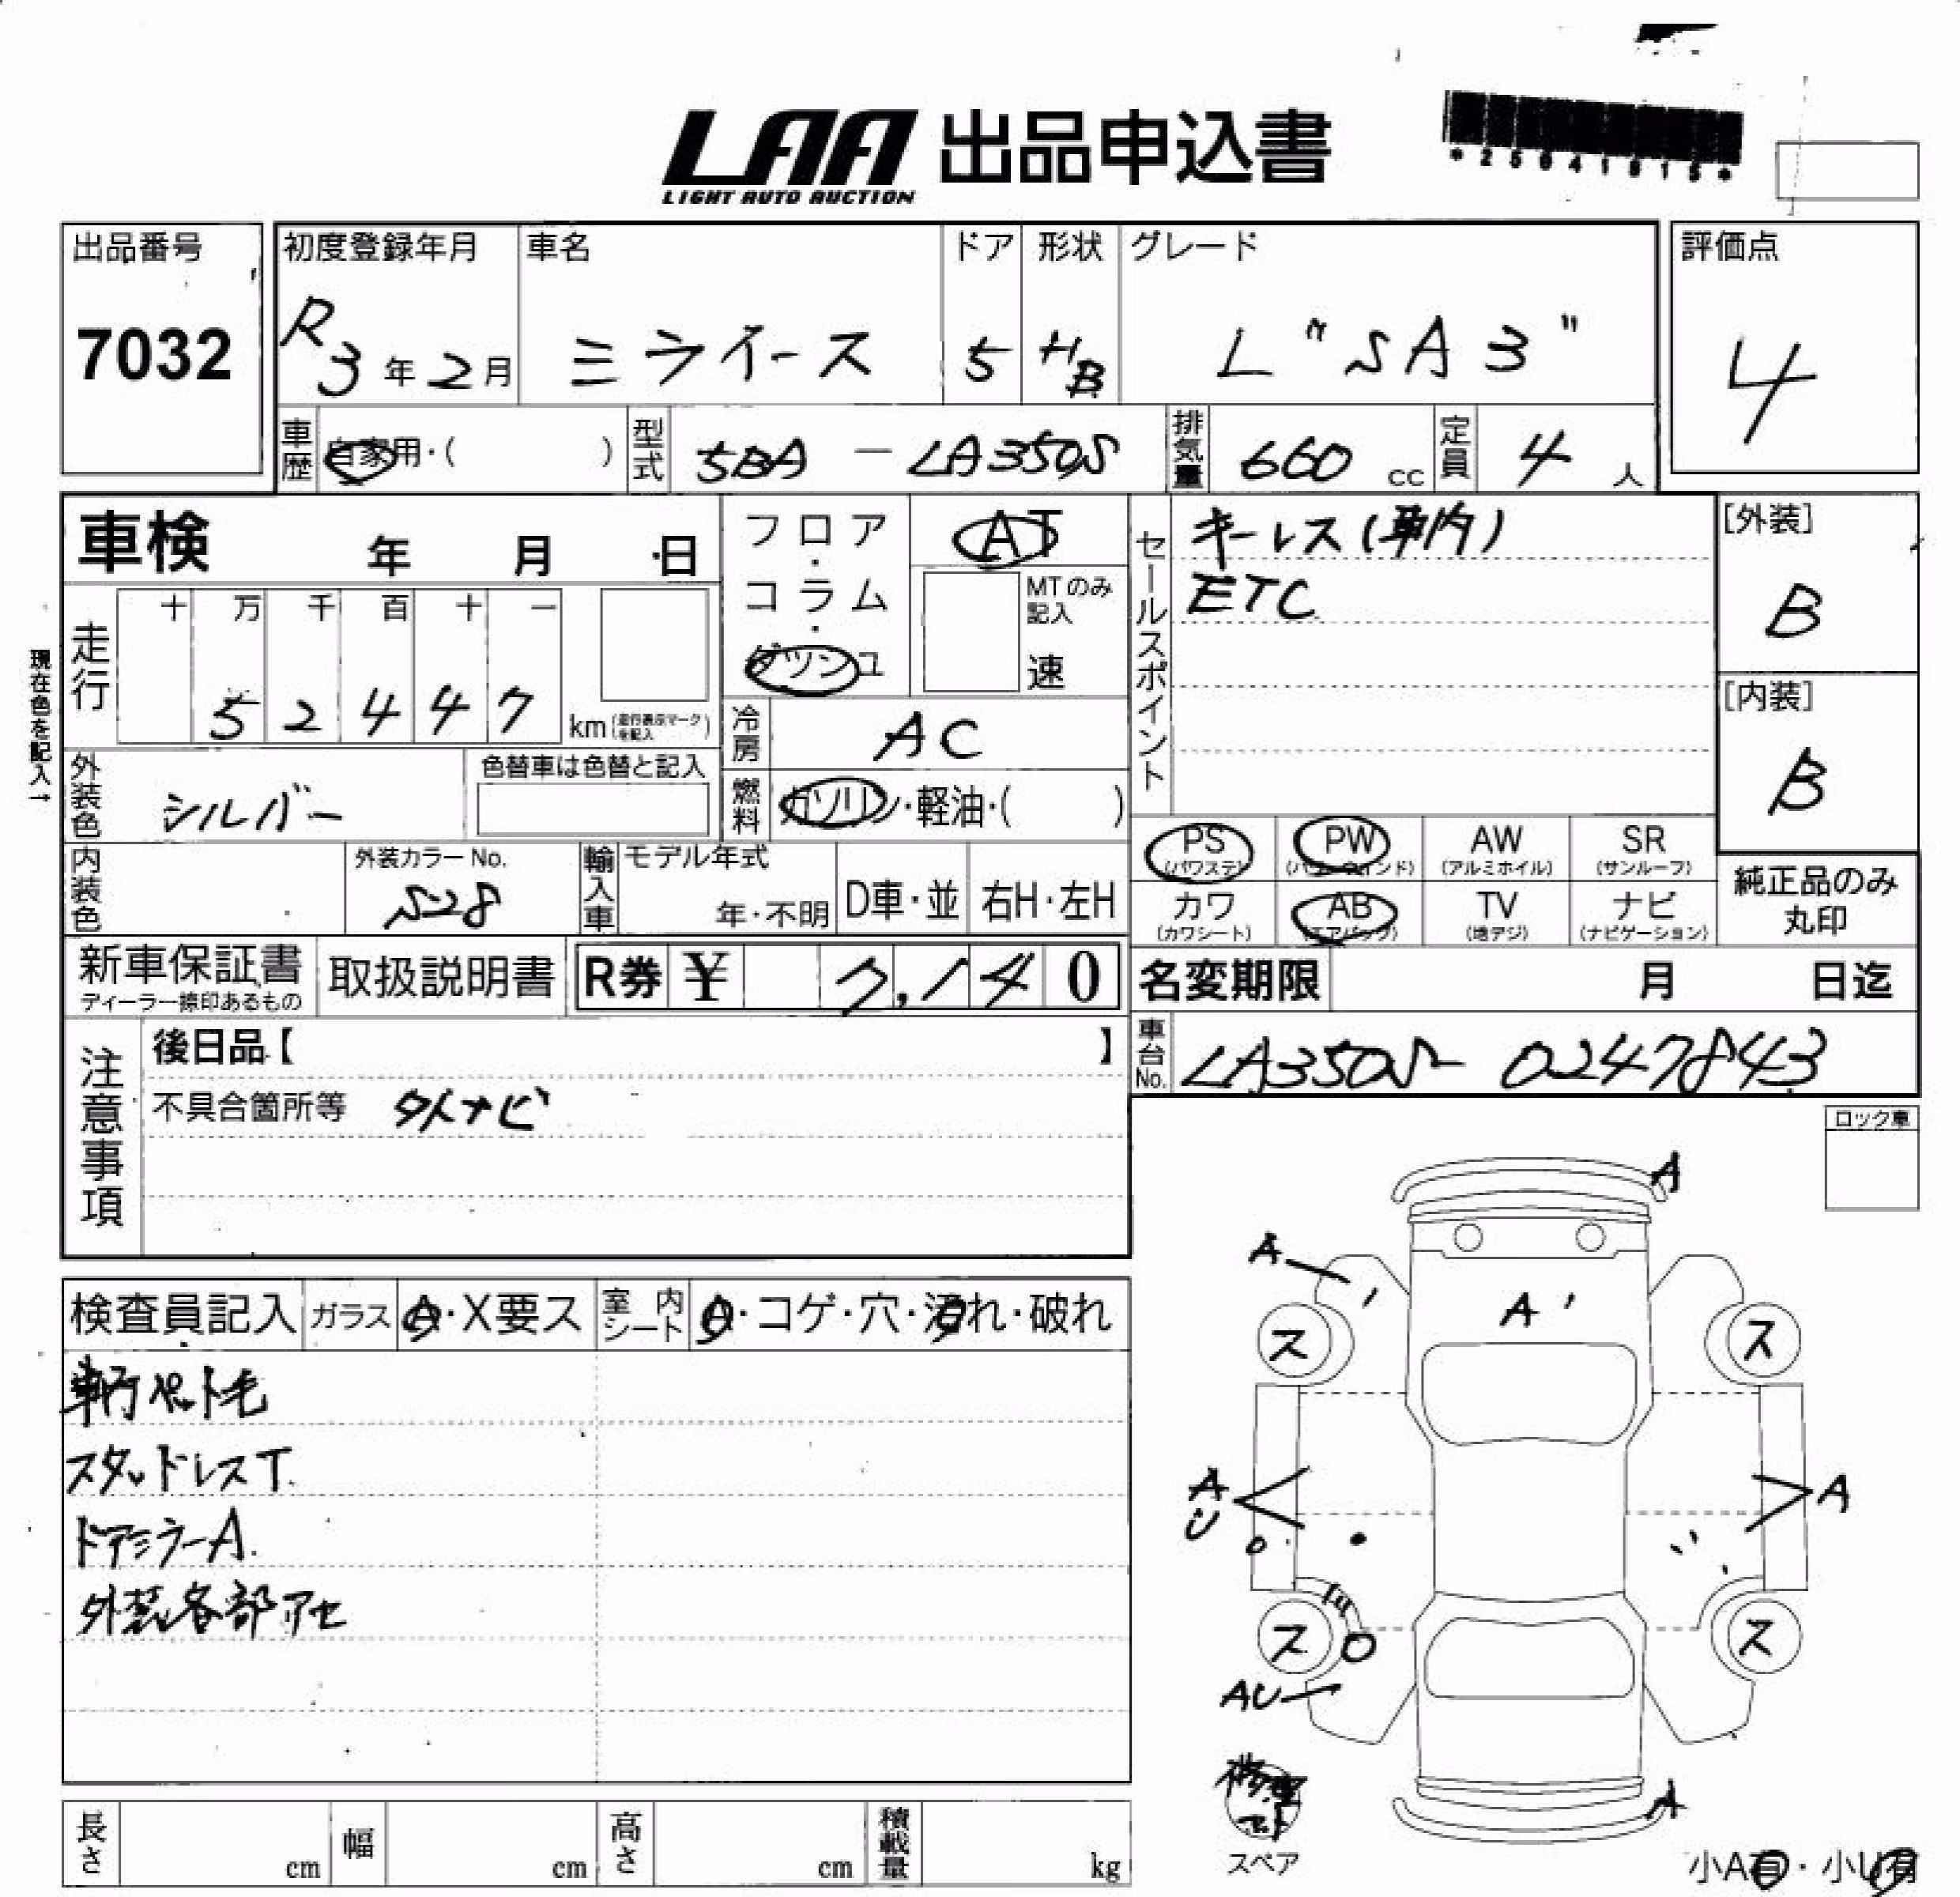 LAA 出品申込書
LIGHT AUTO AUCTION
*25041815*
出品番号
7032
初度登録年月
R3年2月
車名
ミライース
ドア
5
形状
HB
グレード
L "SA3"
評価点
4
車歴
自家用・( )
型式
5BA-LA350S
排気量
660 cc
定員
4 人
車検 年 月 日
フロア・コラム・ダッシュ
AT
MTのみ記入
速
セールスポイント
キーレス(車内)
ETC
[外装]
B
[内装]
B
現在色を記入→
走行
十 万 千 百 十 一
5 2 4 4 7
km (走行表示マークを記入)
冷房
AC
外装色
シルバー
色替車は色替と記入
燃料
ガソリン・軽油・( )
PS
(パワステ)
PW
(パワーウィンド)
AW
(アルミホイル)
SR
(サンルーフ)
カワ
(カワシート)
AB
(エアバッグ)
TV
(地デジ)
ナビ
(ナビゲーション)
純正品のみ
丸印
内装色
外装カラーNo.
S28
輸入車
モデル年式
年・不明
D車・並
右H・左H
新車保証書
ディーラー捺印あるもの
取扱説明書
R券 ¥ 7,140
名変期限 月 日迄
車台No.
LA350S-0247843
注意事項
後日品【 】
不具合箇所等 外ナビ
ロック車
検査員記入
ガラス
A・X要ス
室内シート
A・コゲ・穴・汚れ・破れ
車内ペット毛
スタッドレスT
ドアミラーA
外装各部アセ
A
A
A'
ス
ス
A
U
A
ス
ス
AU
A
修理
スペア
小A有・小U有
長さ cm
幅 cm
高さ cm
積載量 kg